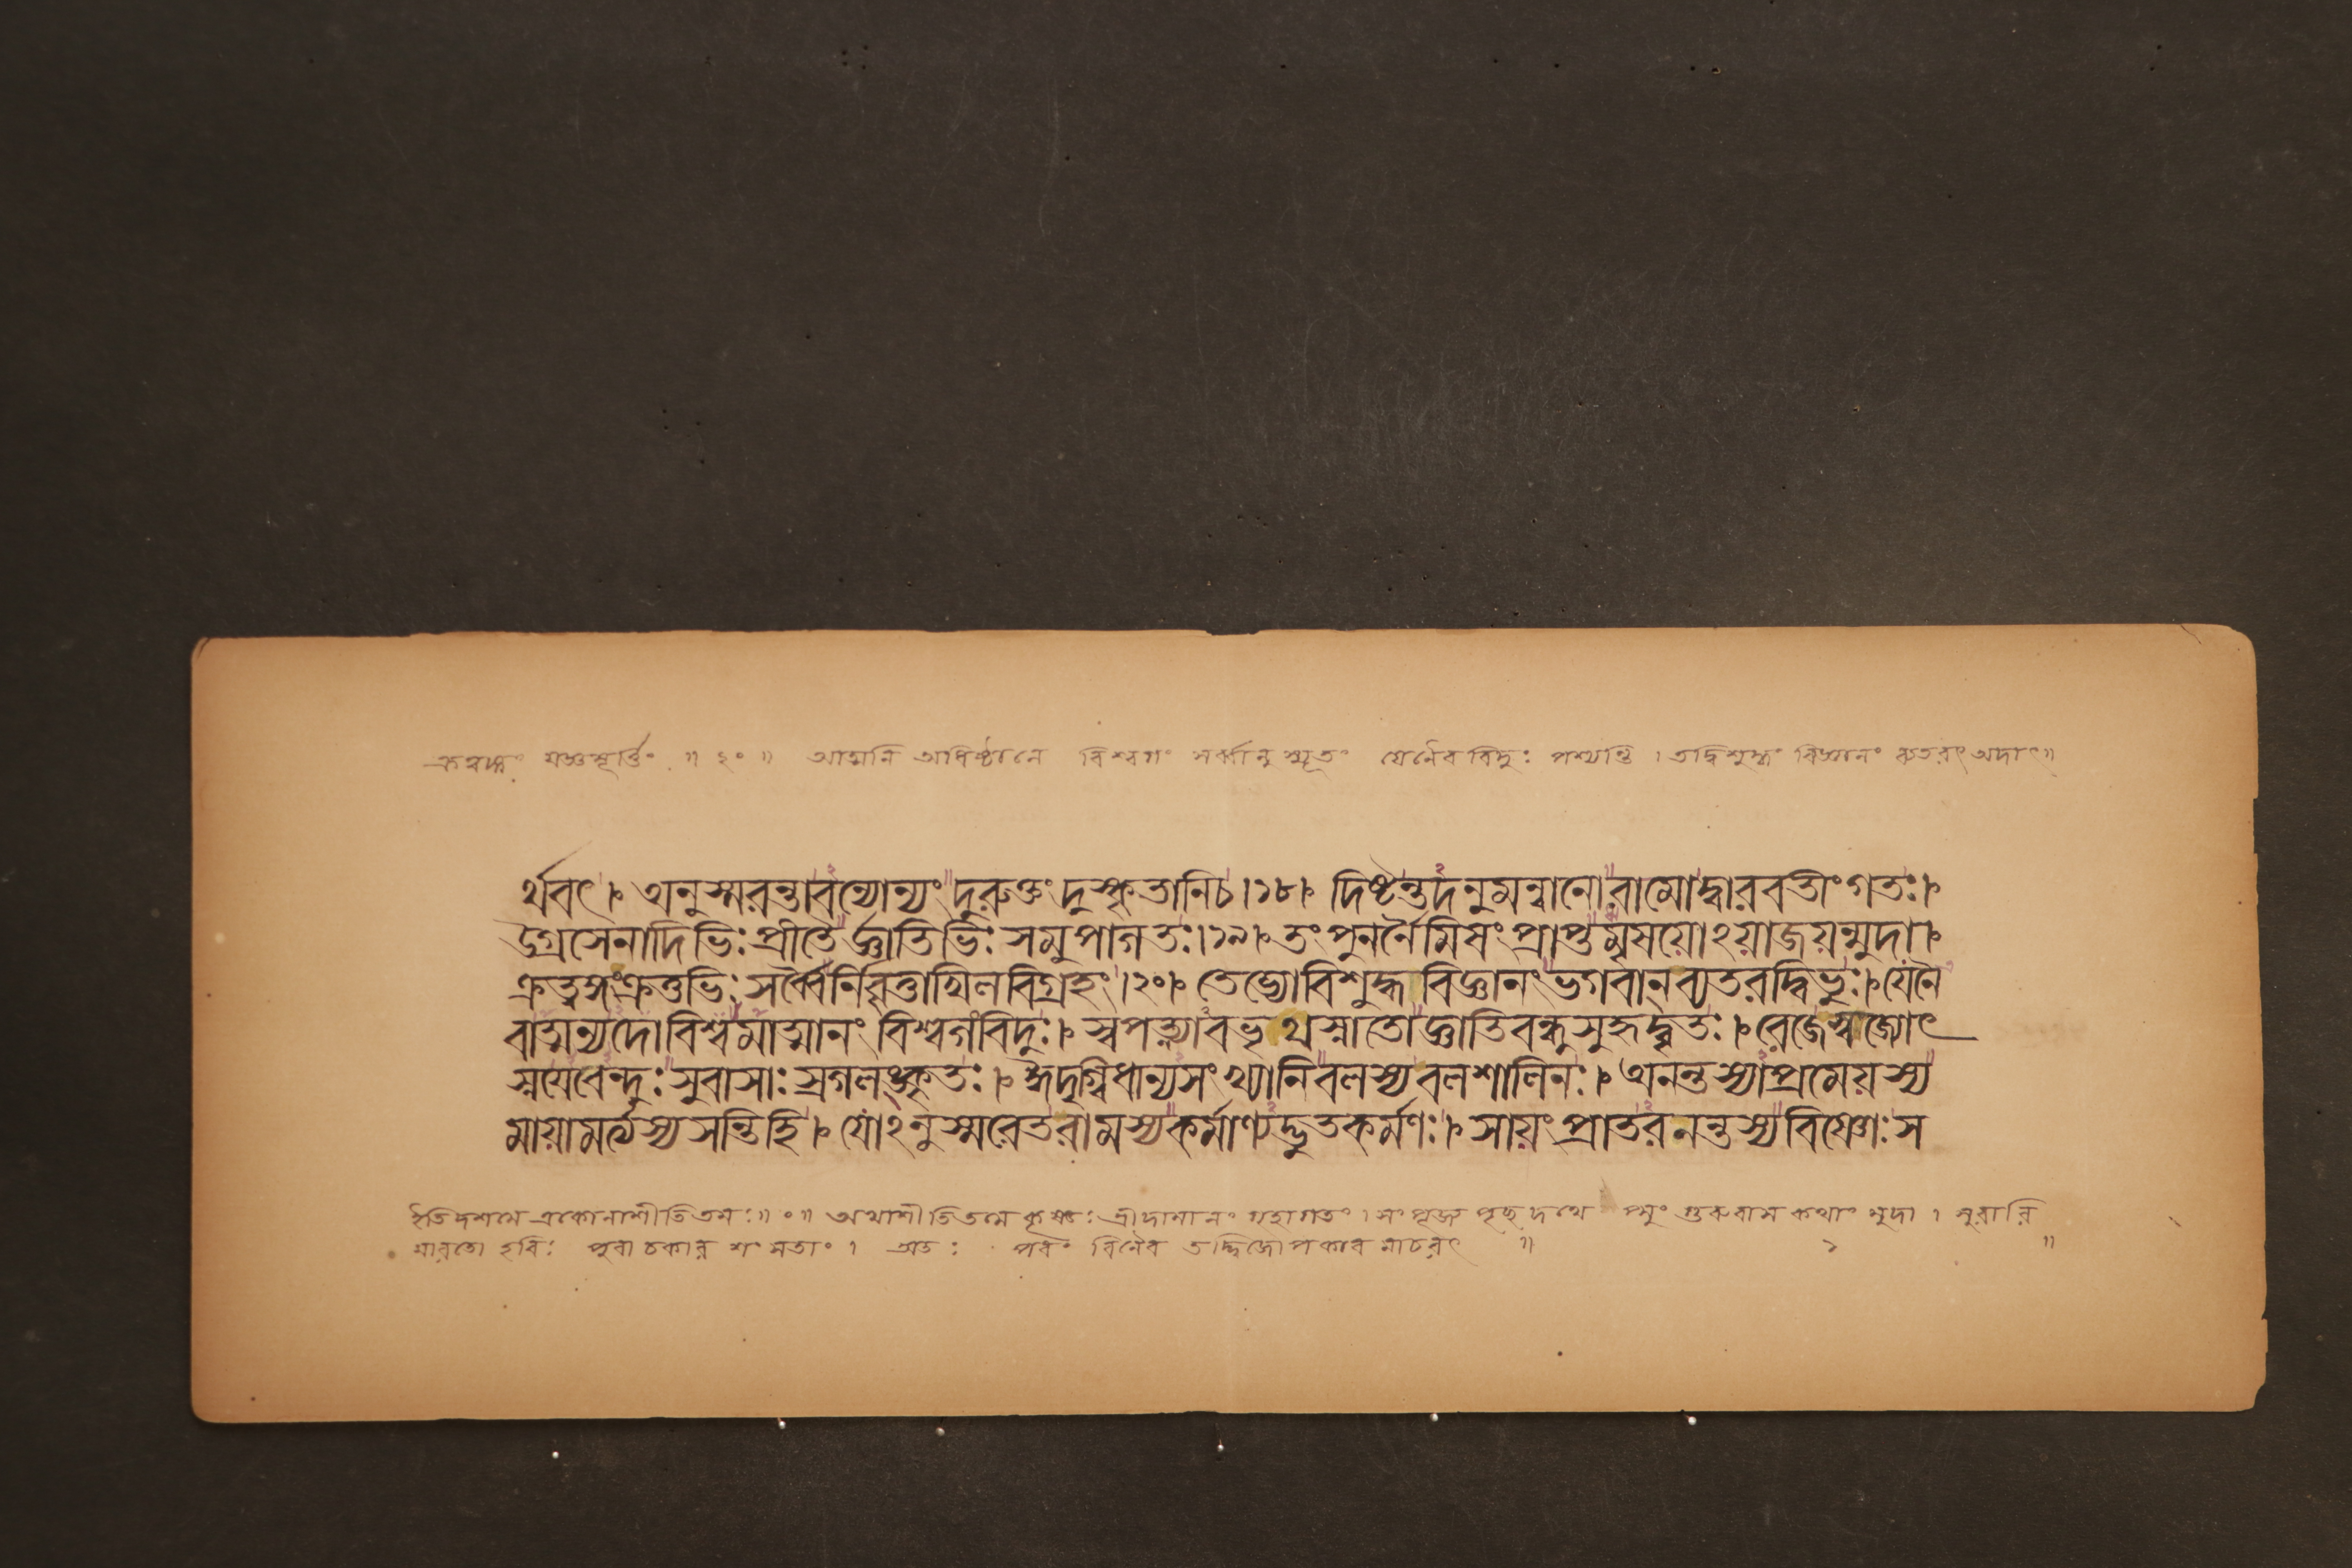 ক্রতুরূপং যজ্ঞমূর্ত্তিং ॥ ২০ ॥ আত্মনি অধিষ্ঠানে বিশ্বগং সর্ব্বানুস্যূতং যেনৈব বিদুঃ পশ্যন্তি । তদ্বিশুদ্ধং বিজ্ঞানং ব্যতরৎ অদাৎ॥
র্থবৎ । অনুস্মরন্তাবন্যোন্যং দুরুক্তং দুষ্কৃতানিচ ।১৮। দিষ্টন্তদনুমন্বানো রামোদ্বারবতীং গতঃ ।
উগ্রসেনাদিভিঃ প্রীতৈর্জ্ঞাতিভিঃ সমুপাগতঃ ।১৯। তং পুনর্নৈমিষং প্রাপ্তমৃষয়োঽয়াজয়ন্মুদা ।
ক্রত্বঙ্গংক্রতুভিঃ সর্ব্বৈর্নিবৃত্তাখিলবিগ্রহং ।২০। তেভ্যোবিশুদ্ধ বিজ্ঞানং ভগবান্ ব্যতরদ্বিভুঃ । যেনৈ
বাত্মন্যদো বিশ্বমাত্মানং বিশ্বগং বিদুঃ । স্বপত্ন্যাবভৃথস্নাতো জ্ঞাতিবন্ধুসুহৃদ্বৃতঃ । রেজেস্বজ্যোৎ
স্নয়েবেন্দুঃ সুবাসাঃ স্রগলঙ্কৃতঃ । ঈদৃগ্বিধান্যসংখ্যানি বলস্য বলশালিনঃ । অনন্তস্যাপ্রমেয়স্য
মায়ামর্ত্যস্য সন্তিহি । যোঽনুস্মরেতরামস্যকর্ম্মাণ্যদ্ভুতকর্ম্মণঃ । সায়ং প্রাতরনন্তস্যবিষ্ণোঃ স
ইতি দশমে একোনাশীতিতমঃ ॥ ০ ॥ অথাশীতিতমে কৃষ্ণঃ শ্রীদামানং গৃহাগতং । সংপূজ্য পুরাকথাং মুদা । মুরারি
হরিঃ পুরা চকার শং সতাং । অতঃ বিনৈব